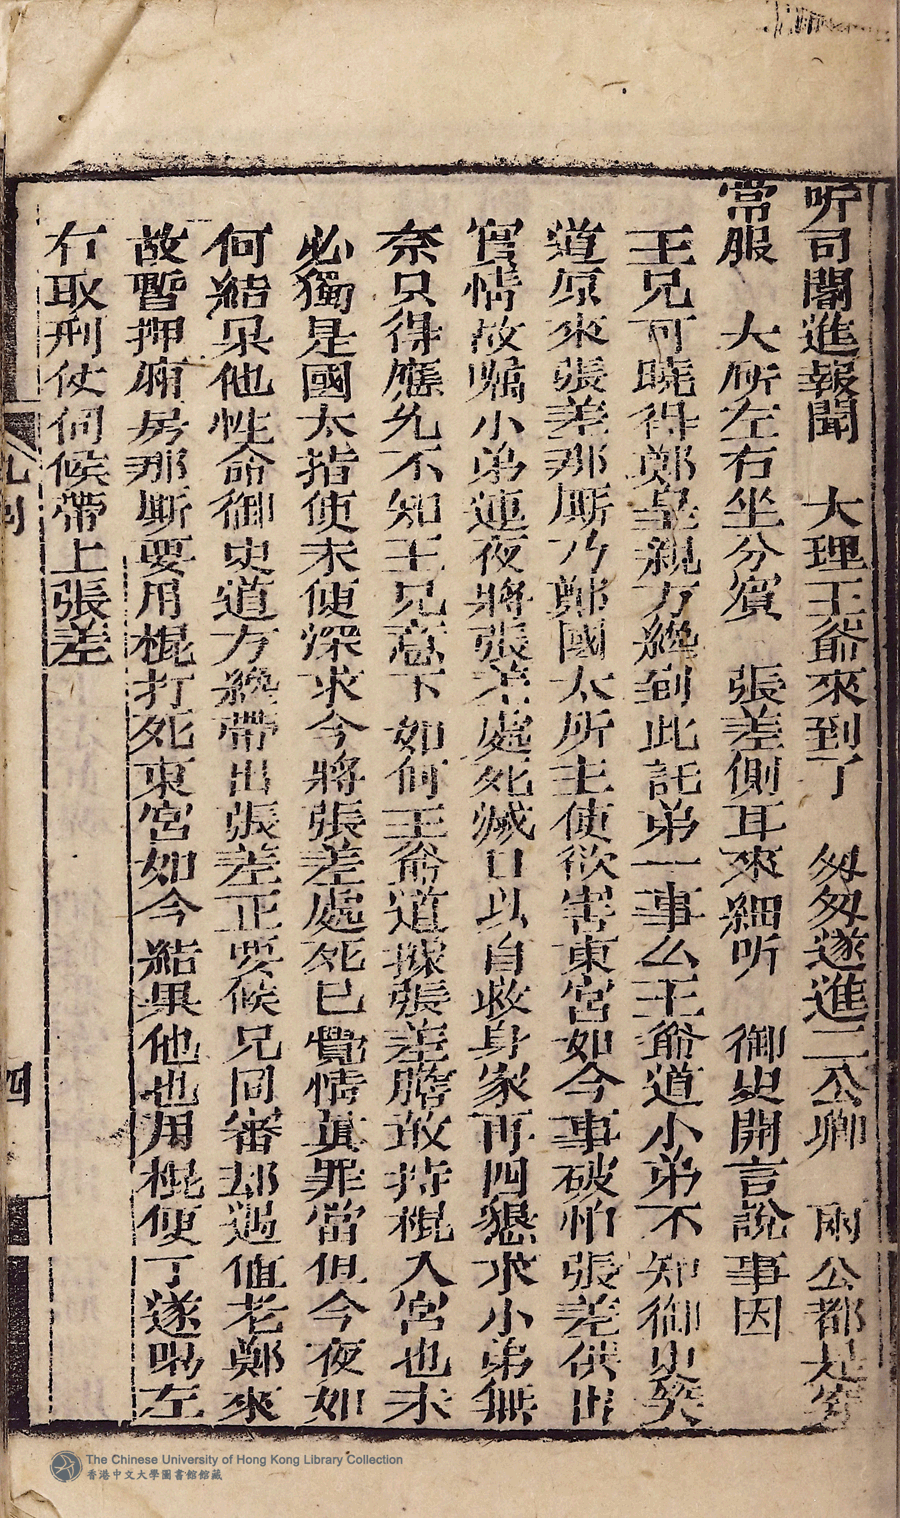 听司閽進報聞　大理王爺來到了　匆匆遂進二公卿　兩公都是穿
常服　大所左右坐分賓　張差側耳來細听　御史開言說事因
王兄可曉得鄭皇親方纔到此託弟一事么王爺道小弟不知御史笑
道原來張差那厮乃鄭國太所主使欲害東宮如今事破怕張差供出
實情故嘱小弟連夜將張差處死滅口以自救身家再四懇求小弟無
奈只得應允不知王兄意下如何王爺道據張差膽敢持棍入宮也未
必獨是國太指使未便深求今將張差處死已覺情眞罪當但今夜如
何結果他性命御史道方纔帶出張差正要候兄同審却遇值老鄭來
故暫押廂房那厮要用棍打死東宮如今結果他也用棍便了遂喝左
右取刑仗伺候帶上張差
四
The Chinese University of Hong Kong Library Collection
香港中文大學圖書館館藏